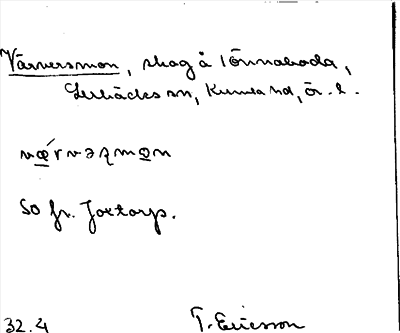 Värversmon, skog å 1 Önnaboda,
Lerbäcks sn, Kumla hd, Ör. l.
vǽrvəʐmɷn
SO fr. Joxtorp.
32.4 T. Ericsson